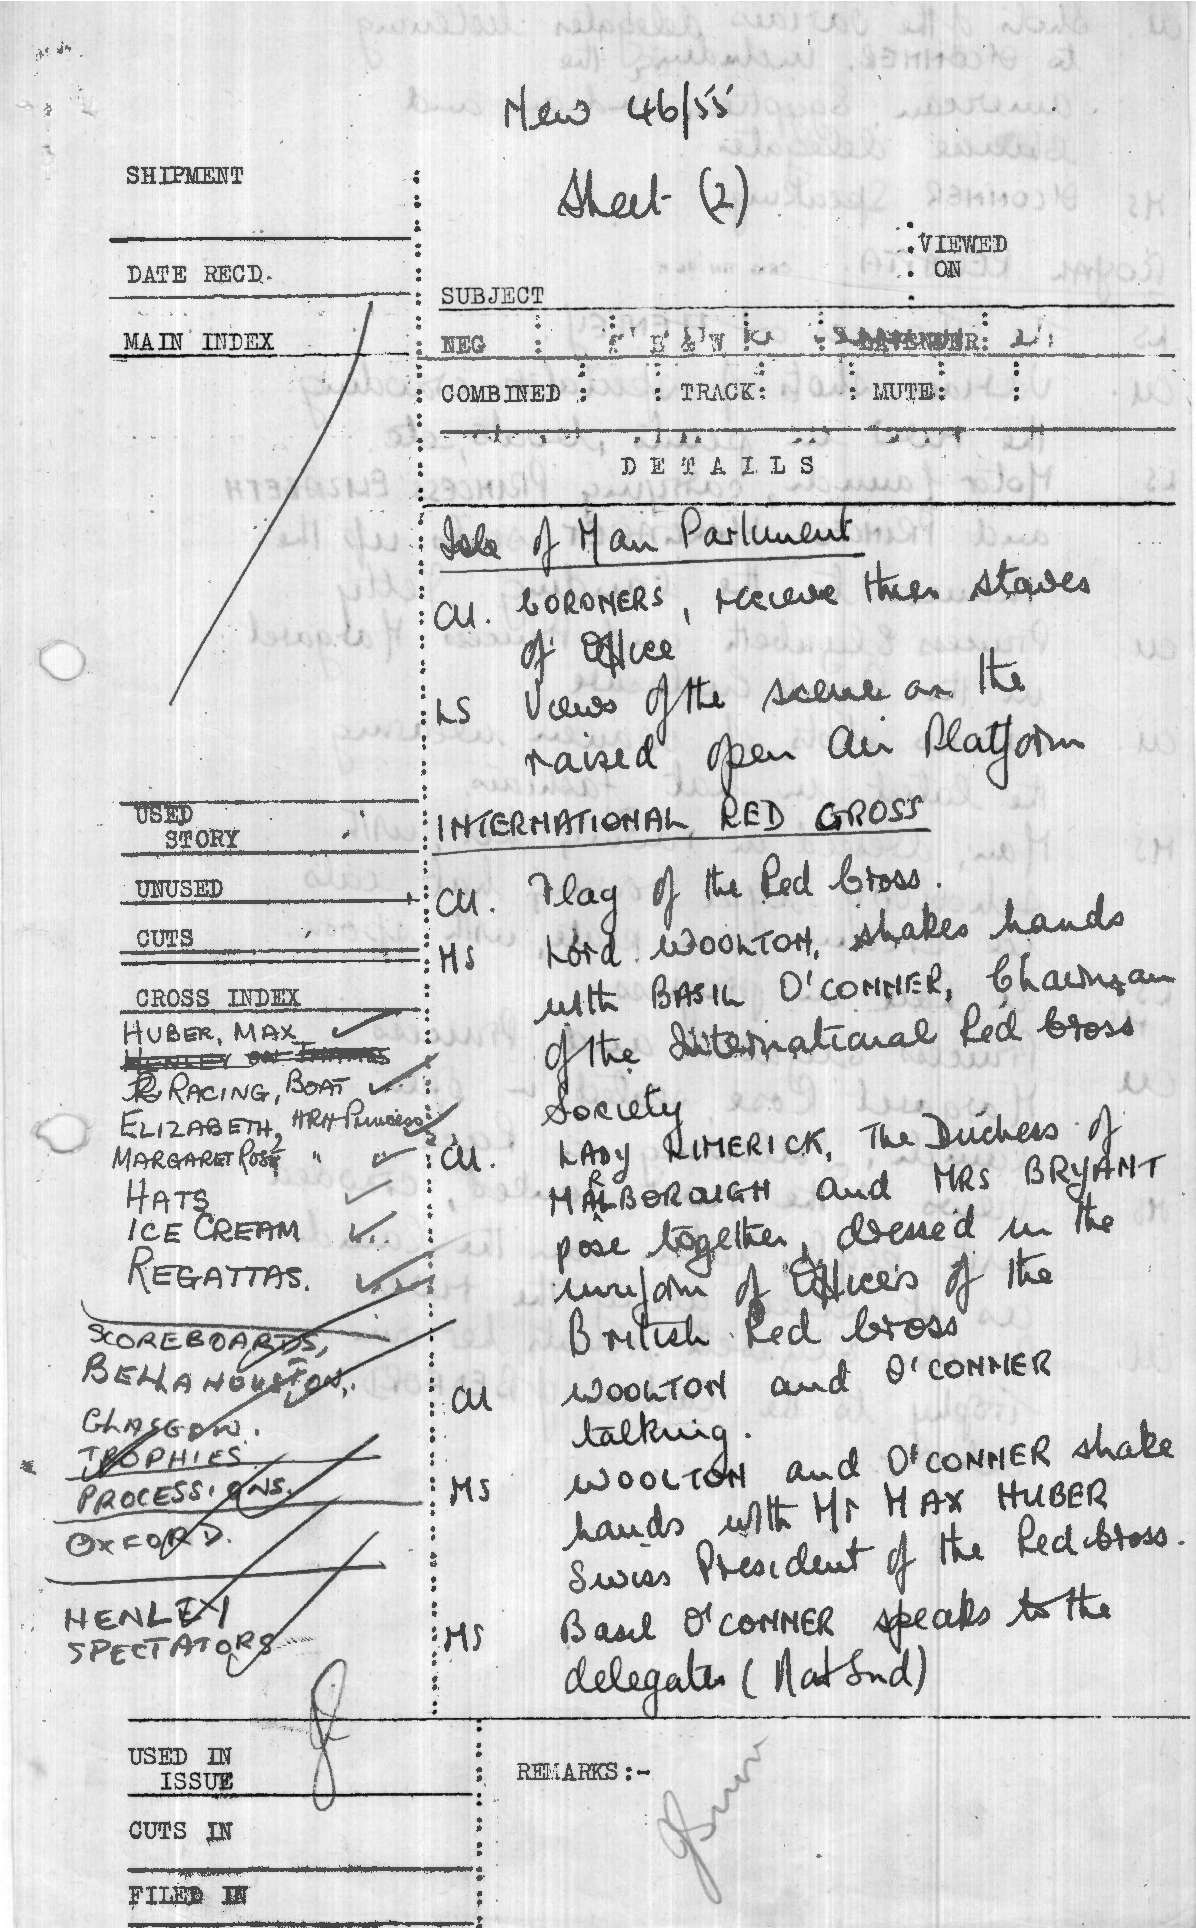 New 46/55
Sheet (2)
SHIPMENT
DATE RECD.
MAIN INDEX
VIEWED
ON
SUBJECT
NEG : : B & W : : LAVENDER: :
COMBINED : : TRACK: : MUTE: :
DETAILS
Isle of Man Parlument
CU. CORONERS, receive their staves
of Office
LS Views of the scene on the
raised open Air Platform
INTERNATIONAL RED CROSS
CU. Flag of the Red Cross.
MS Lord WOOLTON, shakes hands
with BASIL O'CONNER, Chairman
of the International Red Cross
Society
CU. LADY LIMERICK, The Duchess of
MARLBOROUGH and MRS BRYANT
pose together, dressed in the
uniform of Officers of the
British Red Cross
CU WOOLTON and O'CONNER
talking.
MS WOOLTON and O'CONNER shake
hands with Mr MAX HUBER
Swiss President of the Red Cross.
MS Basil O'CONNER speaks to the
delegates (Nat Snd)
USED
STORY
UNUSED
CUTS
CROSS INDEX
HUBER, MAX
HENLEY ON THAMES
RACING, BOAT
ELIZABETH, HRH Princess
MARGARET ROSE "
HATS
ICE CREAM
REGATTAS.
SCOREBOARDS,
BELLAHOUSTON,
GLASGOW.
TROPHIES
PROCESSIONS.
OXFORD.
HENLEY
SPECTATORS
USED IN
ISSUE
CUTS IN
FILED IN
REMARKS:-